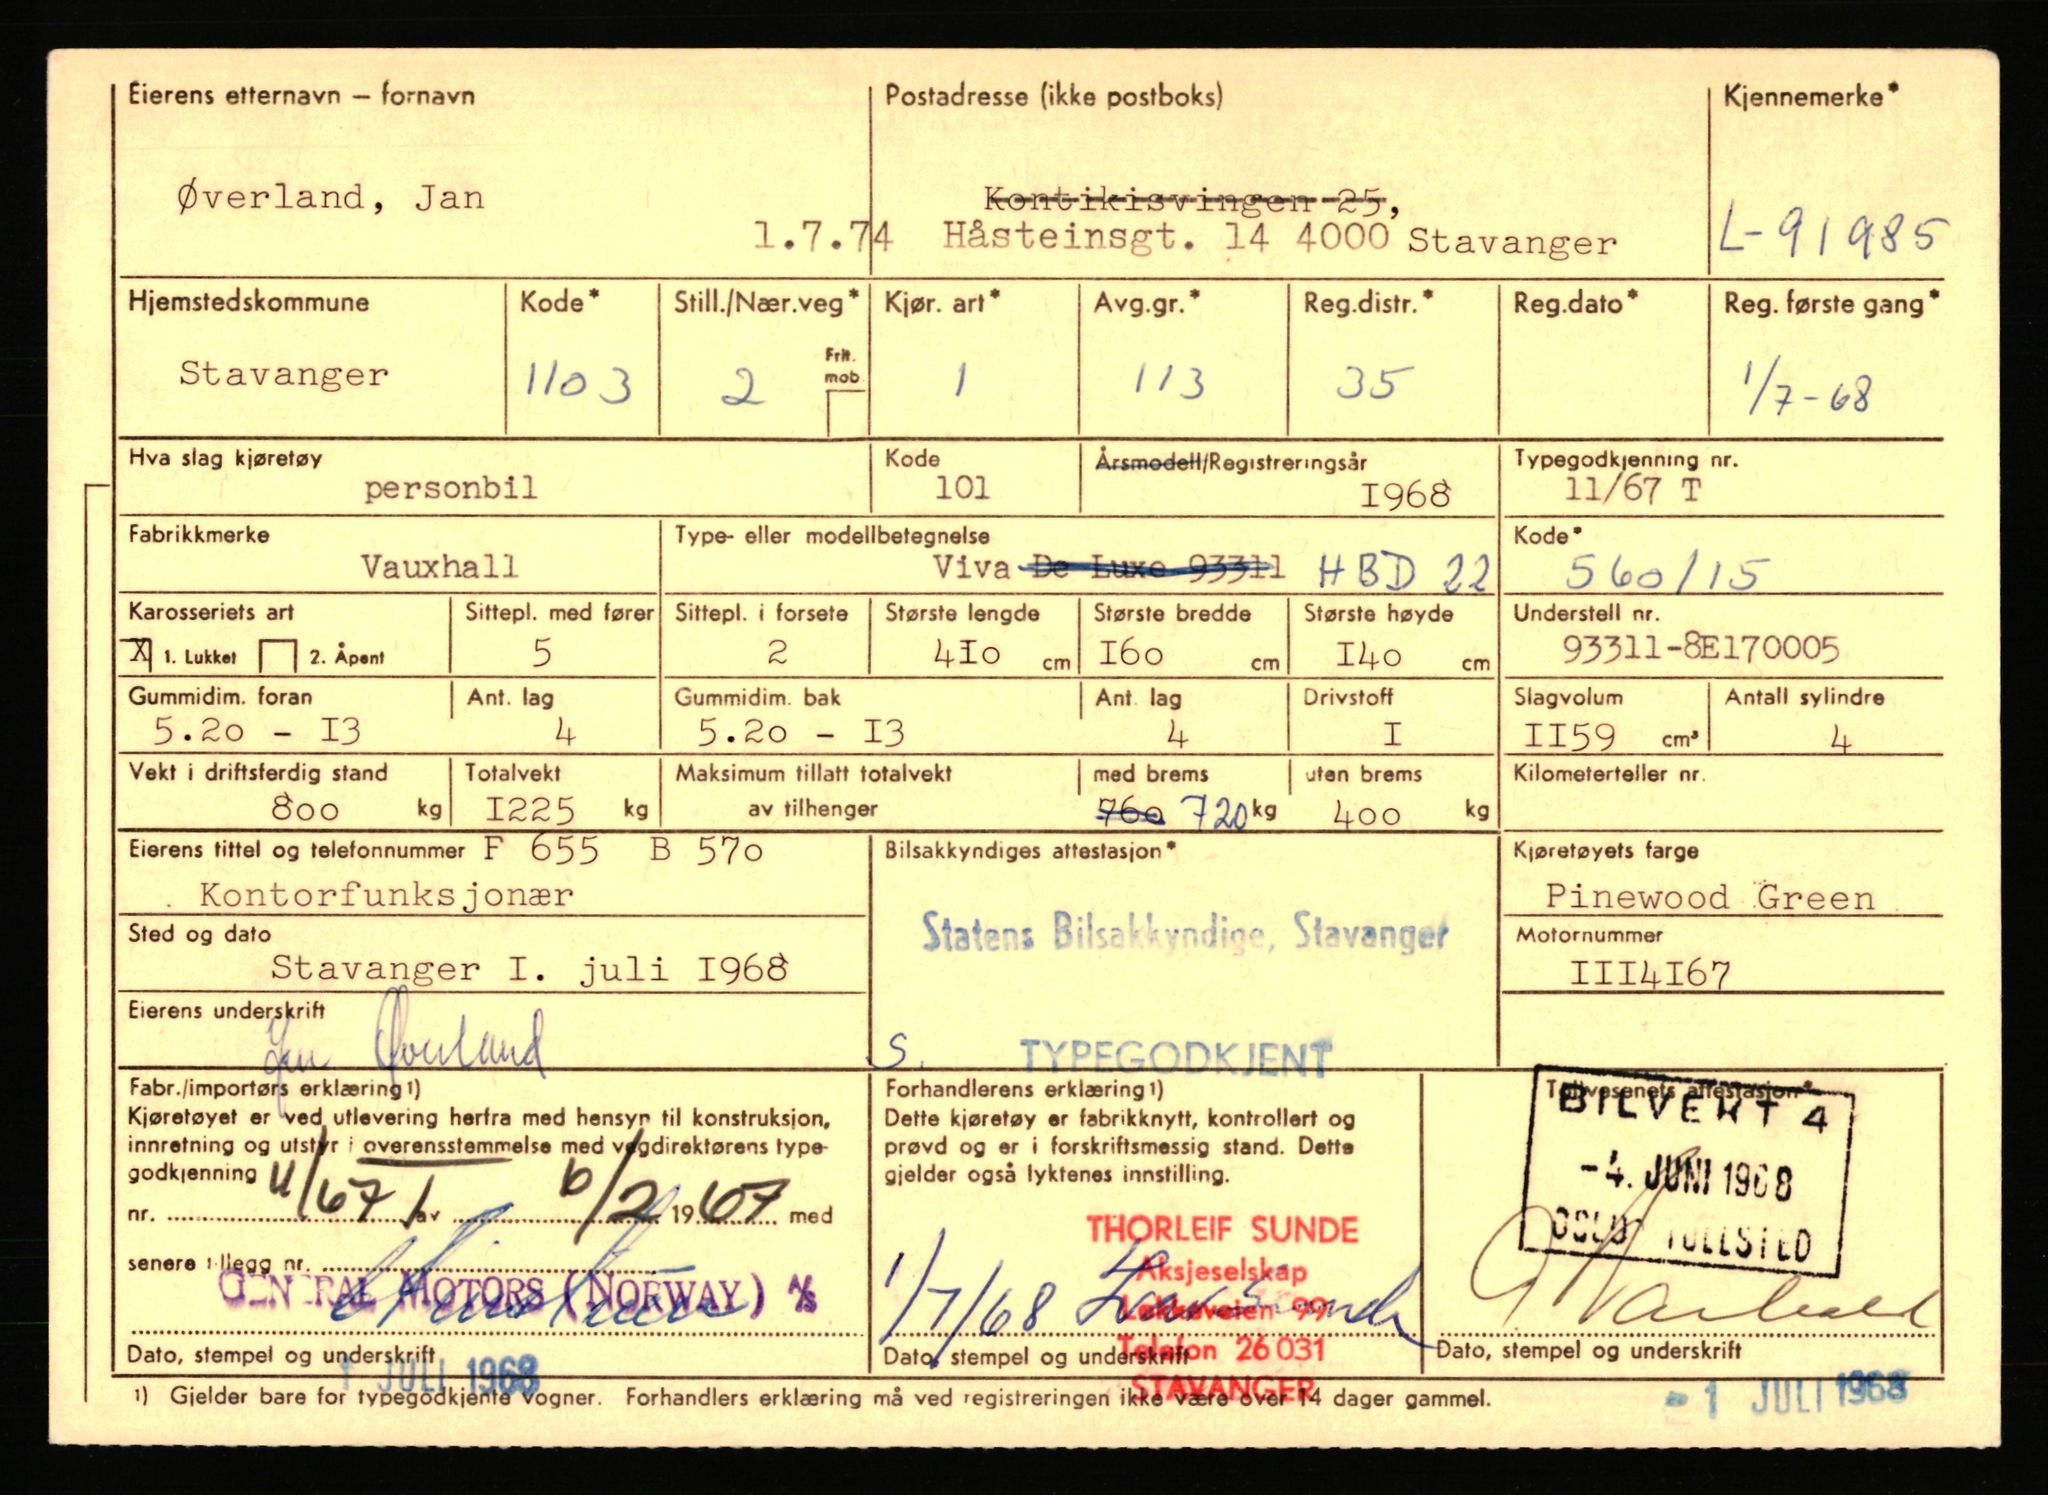 Eierens etternavn – fornavn Postadresse (ikke postboks) Kjennemerke*
Øverland, Jan Kontikisvingen 25,
1.7.74 Håsteinsgt. 14 4000 Stavanger L-91985
Hjemstedskommune Kode* Still./Nær.veg* Kjør. art* Avg.gr.* Reg.distr.* Reg.dato* Reg. første gang*
Frit. mob
Stavanger 1103 2 1 113 35 1/7-68
Hva slag kjøretøy Kode Årsmodell/Registreringsår Typegodkjenning nr.
personbil 101 I968 11/67 T
Fabrikkmerke Type- eller modellbetegnelse Kode*
Vauxhall Viva De Luxe 93311 HBD 22 560/15
Karosseriets art Sittepl. med fører Sittepl. i forsete Største lengde Største bredde Største høyde Understell nr.
X 1. Lukket 2. Åpent 5 2 4I0 cm I60 cm I40 cm 93311-8E170005
Gummidim. foran Ant. lag Gummidim. bak Ant. lag Drivstoff Slagvolum Antall sylindre
5.20 - I3 4 5.20 - I3 4 I II59 cm³ 4
Vekt i driftsferdig stand Totalvekt Maksimum tillatt totalvekt med brems uten brems Kilometerteller nr.
800 kg I225 kg av tilhenger 760 720 kg 400 kg
Eierens tittel og telefonnummer F 655 B 570 Bilsakkyndiges attestasjon* Kjøretøyets farge
Kontorfunksjonær Pinewood Green
Statens Bilsakkyndige, Stavanger
Sted og dato Motornummer
Stavanger I. juli I968 III4I67
Eierens underskrift
Jan Øverland S. TYPEGODKJENT
Fabr./importørs erklæring1) Forhandlerens erklæring1) Tollvesenets attestasjon*
Kjøretøyet er ved utlevering herfra med hensyn til konstruksjon,
innretning og utstyr i overensstemmelse med vegdirektørens type-
godkjenning
nr. 11/67 av 6/2 1967 med
senere tillegg nr.
GENERAL MOTORS (NORWAY) A/S
Dato, stempel og underskrift
1 JULI 1968
Dette kjøretøy er fabrikknytt, kontrollert og
prøvd og er i forskriftsmessig stand. Dette
gjelder også lyktenes innstilling.
THORLEIF SUNDE
Aksjeselskap
1/7/68 Løkkeveien 99
Telefon 26 031
STAVANGER
Dato, stempel og underskrift
BILVEKT 4
-4. JUNI 1968
OSLO TOLLSTED
Dato, stempel og underskrift
- 1 JULI 1968
1) Gjelder bare for typegodkjente vogner. Forhandlers erklæring må ved registreringen ikke være over 14 dager gammel.